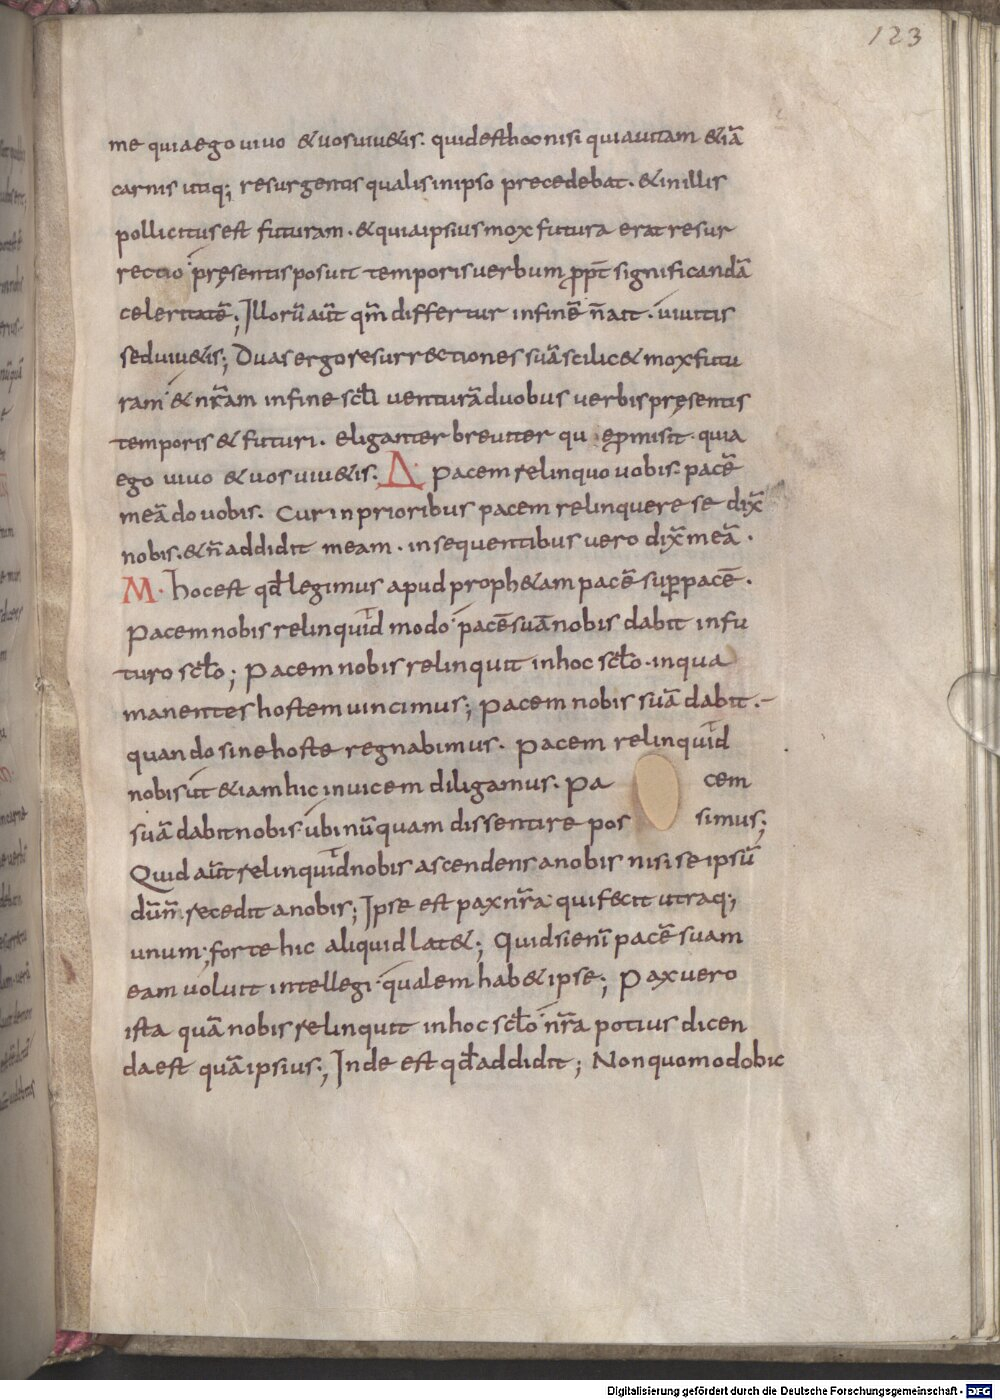 123
me quia ego uiuo & uos uiu&is. quid est hoc nisi quia uitam &iā
carnis utiq; resurgentis qualis in ipso precedebat. & in illis
pollicitus est futuram. & quia ipsius mox futura erat resur
rectio presentis posuit temporis uerbum ꝓpt̄ significandā
celeritatē; Illorū aūt qm̄ differtur in finē n̄ ait. uiuitis
sed uiu&is; Duas ergo resurr&tiones suā scilic& mox futu
ram & nr̄am in fine sc̄li uenturā duobus uerbis pręsentis
temporis & futuri. eliganter breuiter qu ęꝓmisit. quia
ego uiuo & uos uiu&is. Δ. Pacem relinquo uobis. pacē
meā do uobis. Cur in prioribus pacem relinquere se dix̄
nobis. & n̄ addidit meam. in sequentibus uero dix̄ meā.
M. hoc est qd̄ legimus apud proph&am pacē suꝑ pacē.
Pacem nobis relinquid modo pacē suā nobis dabit in fu
turo sc̄lo; Pacem nobis relinquit in hoc sc̄lo. in qua
manentes hostem uincimus; pacem nobis suā dabit.
quando sine hoste regnabimus. Pacem relinquid
nobis ut & iam hic inuicem diligamus. Pa cem
suā dabit nobis ubi nūquam dissentire pos simus;
Quid aūt relinquid nobis ascendens a nobis nisi se ipsū
dū n̄ recedit a nobis; Ipse est pax nr̄a qui fecit utraq;
unum; forte hic aliquid lat&; Quid si enī pacē suam
eam uoluit intellegi qualem hab& ipse; Pax uero
ista quā nobis relinquit in hoc sc̄lo nr̄a potius dicen
da est quā ipsius; Inde est qd̄ addidit; Non quomodo hic
Digitalisierung gefördert durch die Deutsche Forschungsgemeinschaft - DFG